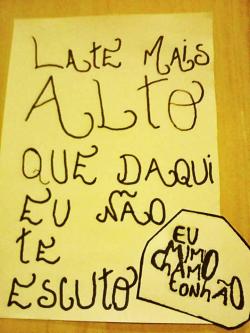 LATE MAIS
ALTO
QUE DAQUI
EU NÃO
TE
ESCUTO
EU
MIMO
CHAMO
TONHÃO